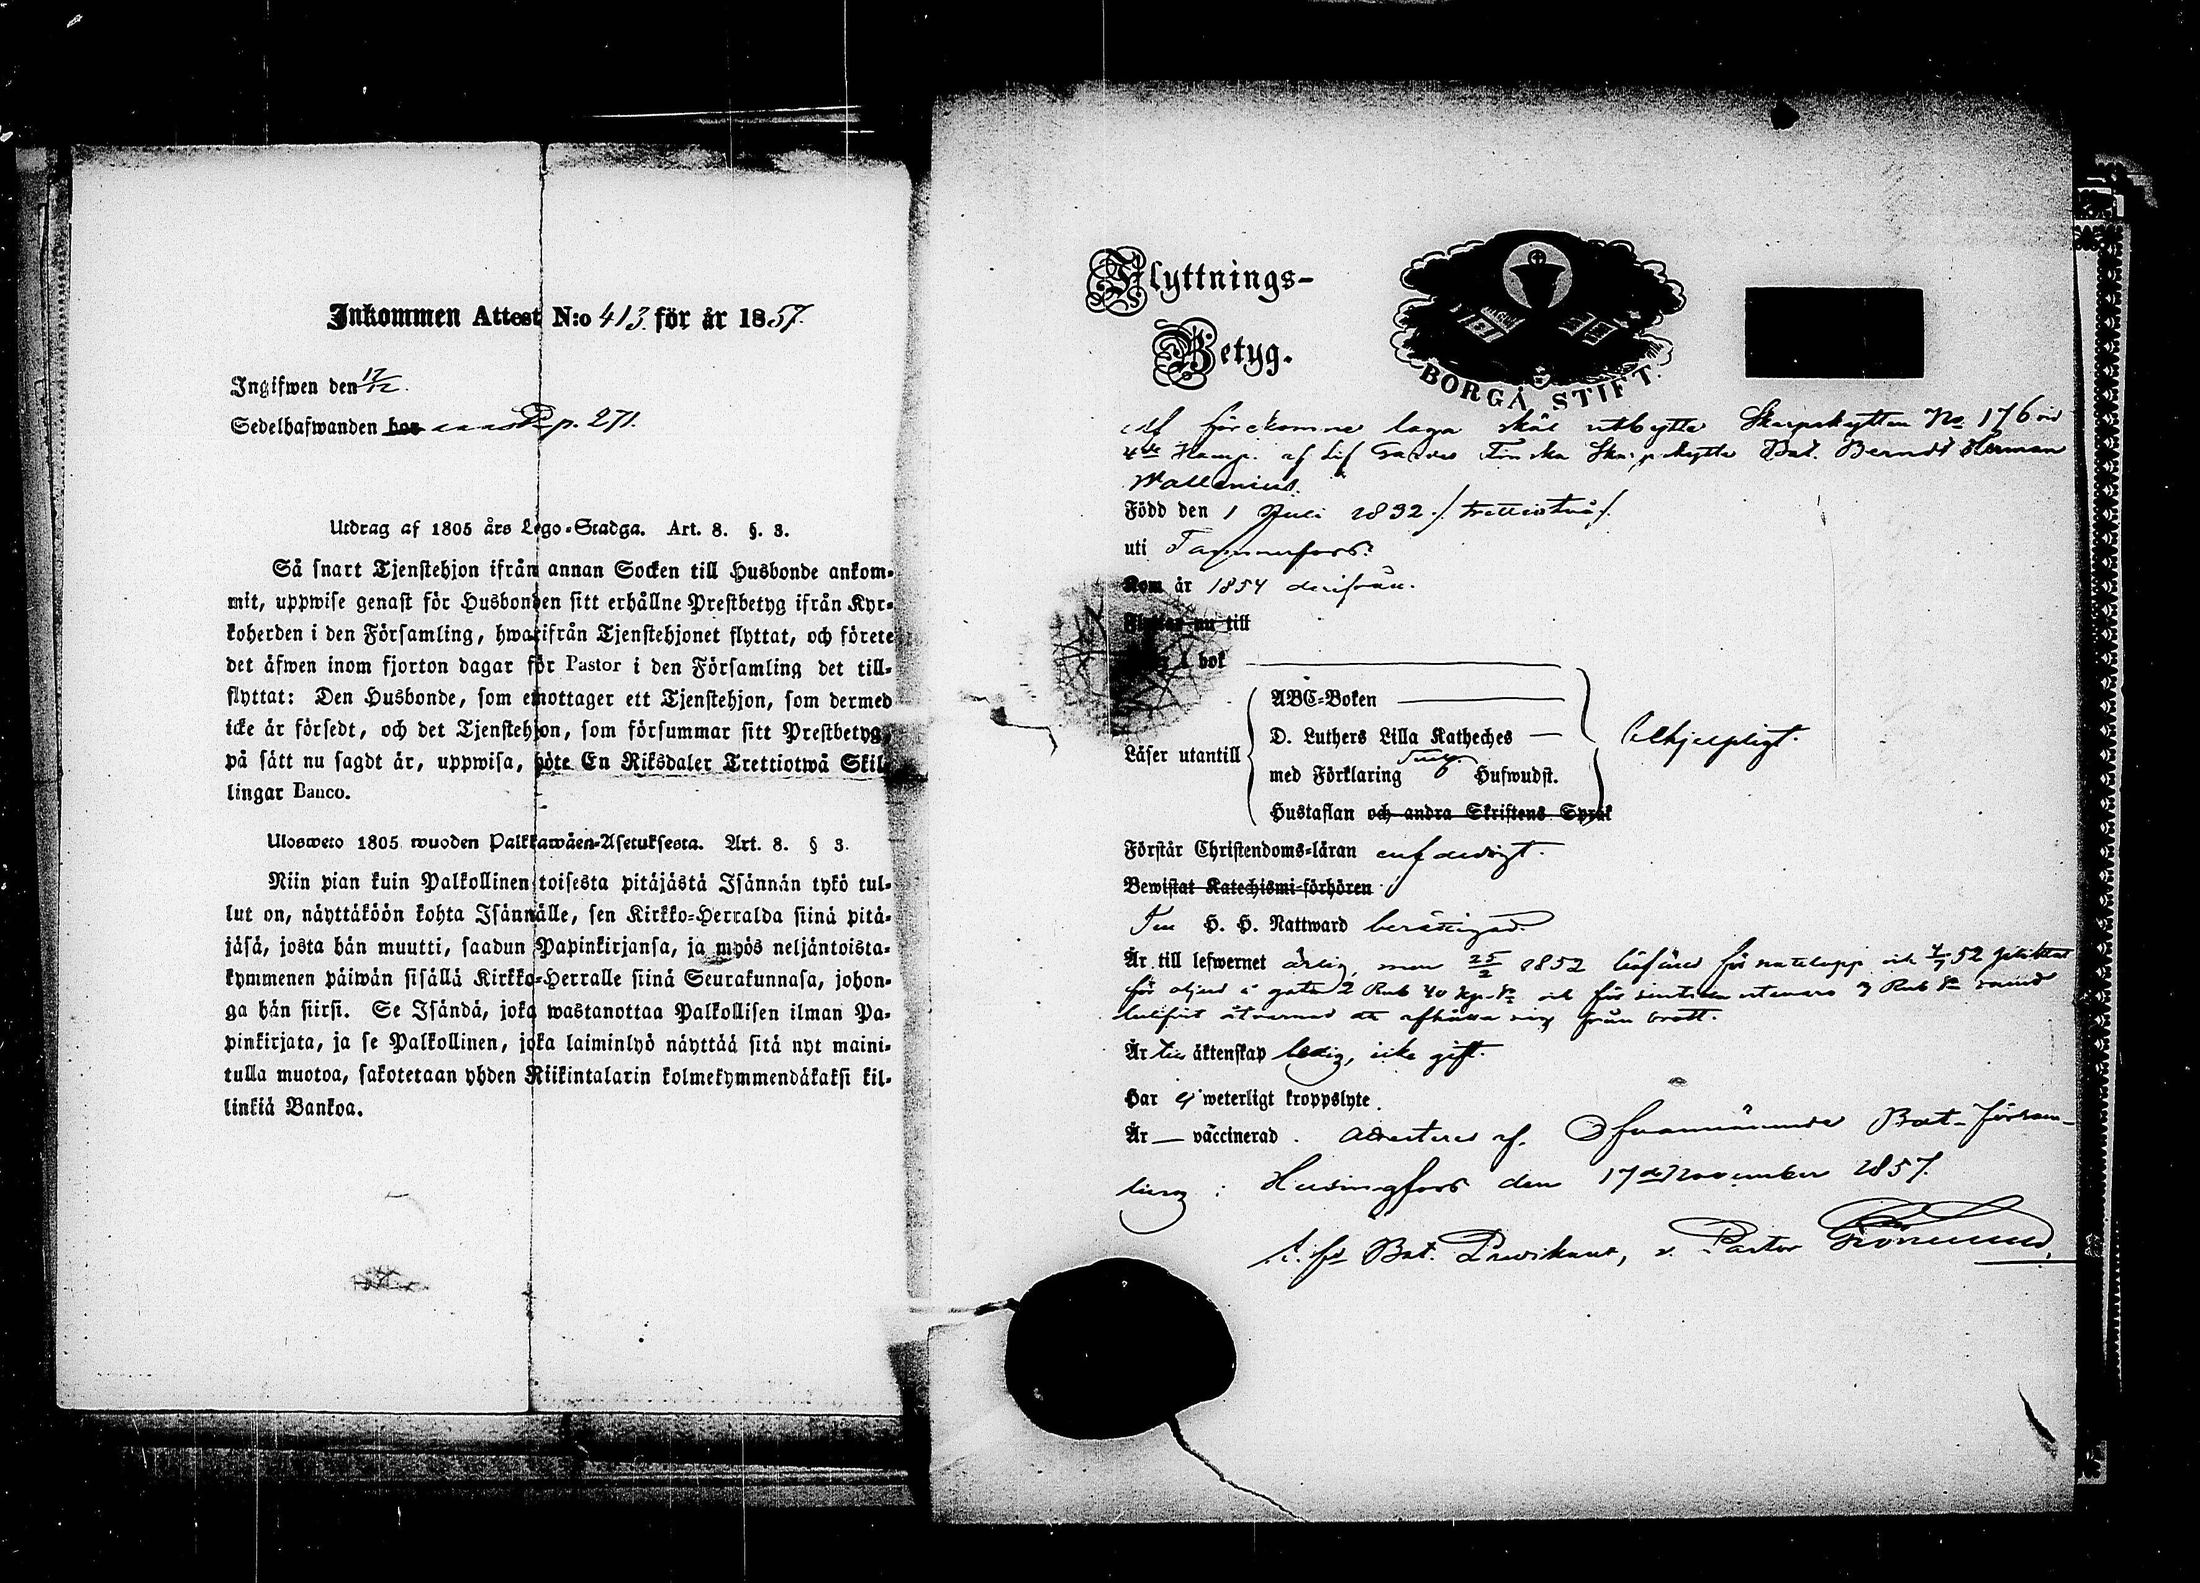 Inkommen Attest N:o 413. för år 1857.
Ingifwen den 17/12.
Sedelhafwanden hos p. 271.
Utdrag af 1805 års Lego-Stadga. Art. 8. §. 3.
Så snart Tjenstehjon ifrån annan Socken till Husbonde ankom-
mit, uppwise genast för Husbonden sitt erhållne Prestbetyg ifrån Kyr-
koherden i den Församling, hwarifrån Tjenstehjonet flyttat, och förete
det äfwen inom fjorton dagar för Pastor i den Församling det till-
flyttat: Den Husbonde, som emottager ett Tjenstehjon, som dermed
icke är försedt, och det Tjenstehjon, som försummar sitt Prestbetyg,
på sätt nu sagdt är, uppwisa, böte En Riksdaler Trettiotwå Skil-
lingar Banco.
Ulosweto 1805 wuoden Palkkawäen-Asetuksesta. Art. 8. § 3.
Niin pian kuin Palkollinen toisesta pitäjästä Isännän tykö tul-
lut on, näyttäköön kohta Isännälle, sen Kirkko-Herralda siinä pitä-
jäsä, josta hän muutti, saadun Papinkirjansa, ja myös neljäntoista-
kymmenen päiwän sisällä Kirkko-Herralle siinä Seurakunnasa, johon-
ga hän siirsi. Se Isändä, joka wastanottaa Palkollisen ilman Pa-
pinkirjata, ja se Palkollinen, joka laiminlyö näyttää sitä nyt maini-
tulla muotoa, sakotetaan yhden Riikintalarin kolmekymmendäkaksi kil-
linkiä Bankoa.
Flyttnings-
Betyg.
BORGÅ STIFT.
Af förekomne laga skäl utbytte Skarpskytten No 176 vid
4de Komp. af Lif Gardes Finska Skarpskytte Bat. Berndt Herman
Wallenius.
Född den 1 Juli 1832 /. trettiotvå/.
uti Tammerfors.
Kom år 1854 derifrån.
Flyttar nu till
i bok
ABC-Boken
D. Luthers Lilla Katheches
Läser utantill
med Förklaring Hufwudst.
Hustaflan och andra Skriftens Språk
Förstår Christendoms-läran enfaldigt.
Bewistat Katechismi-förhören
Till H. H. Nattward berättigad.
Är till lefwernet ärlig, men 25/2 1852 för och 52
för i gata 2 Rub 40 kop. Sr och för 3 Rub Sr samt
att afhålla sig från brott.
Är till äktenskap ledig, icke gift.
Har ej weterligt kroppslyte.
Är — vaccinerad. Attesteras af Ofvannämnde Bat-Försam-
ling i Helsingfors den 17de November 1857.
Bat. Predikant, v. Pastor